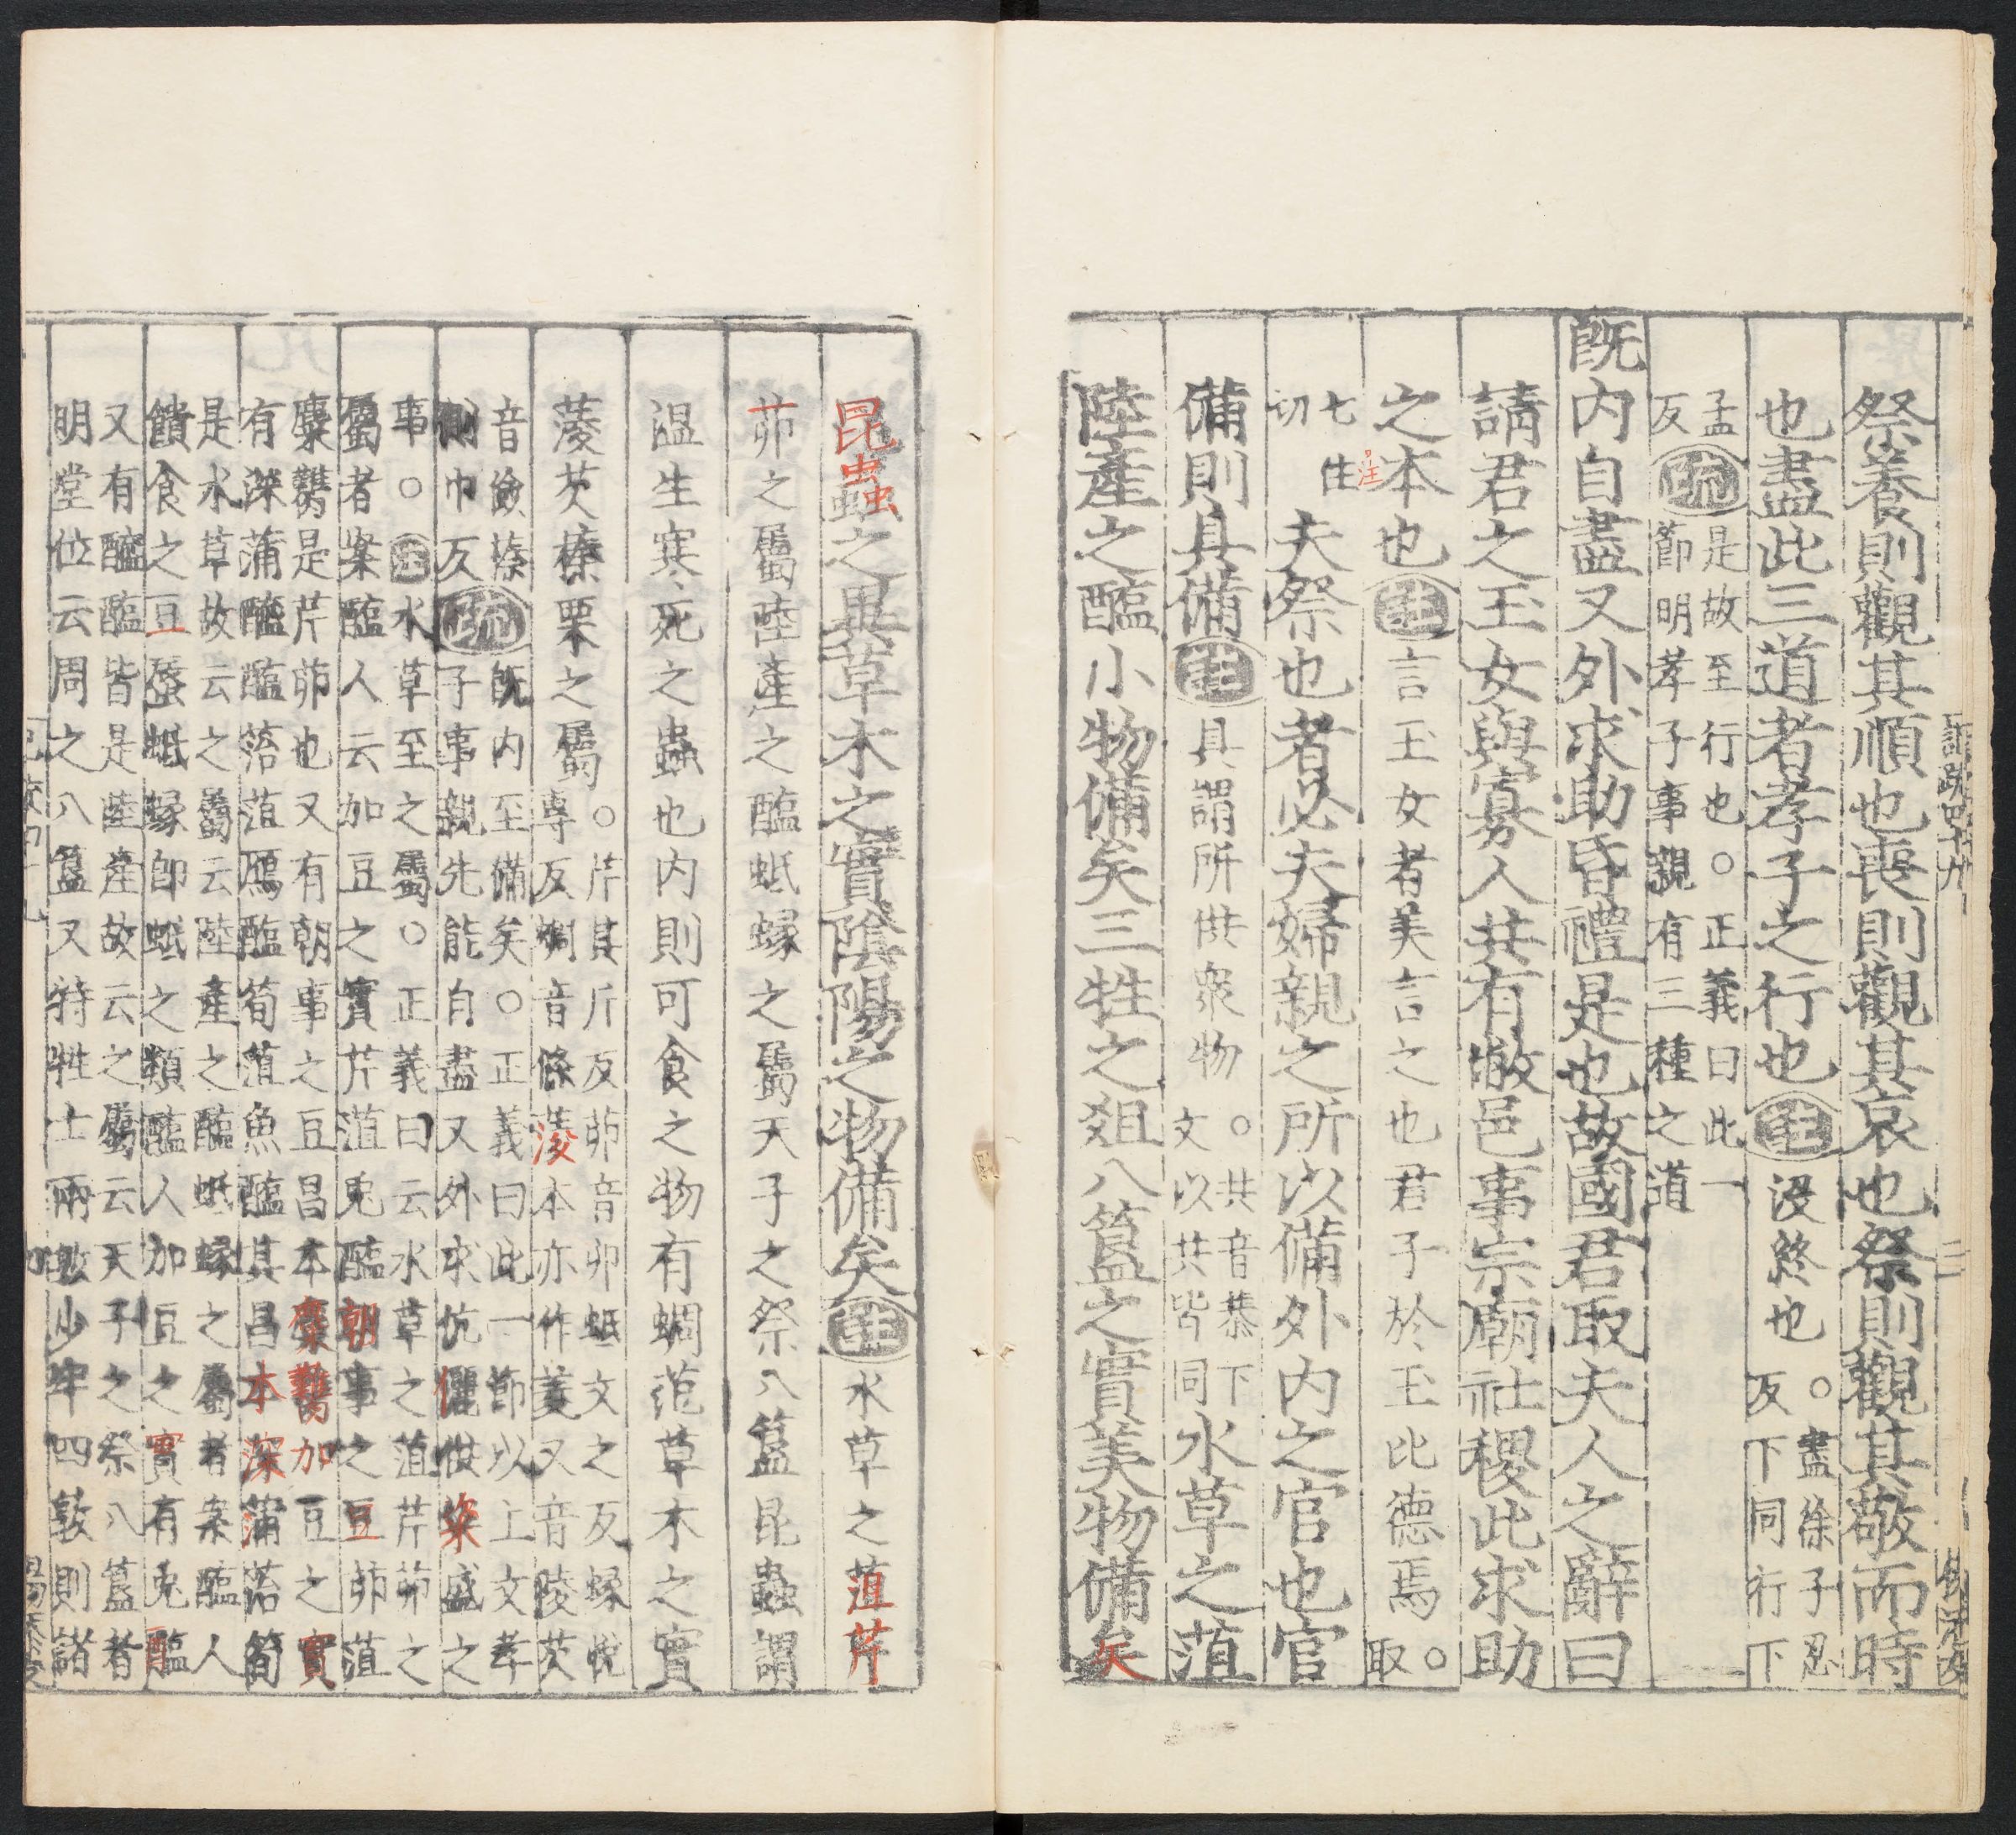 祭養則觀其順也喪則觀其哀也祭則觀其敬而時
也盡此三道者孝子之行也注沒終也○盡徐子忍
反下同行下
孟
反疏是故至行也○正義曰此一
節明孝子事親有三種之道
既內自盡又外求助昏禮是也故國君取夫人之辭曰
請君之玉女與寡人共有敝邑事宗廟社稷此求助
之本也注言玉女者美言之也君子於玉比德焉○
取
七住
切夫祭也者必夫婦親之所以備外內之官也官
注
備則具備注具謂所供衆物○共音恭下
文以共皆同水草之菹
陸產之醢小物備矣三牲之俎八簋之實美物備矣
昆蟲之異草木之實陰陽之物備矣注水草之菹芹
茆之屬陸產之醢蚳蝝之屬天子之祭八簋昆蟲謂
温生寒死之蟲也內則可食之物有蜩范草木之實
蔆芡榛栗之屬○芹其斤反茆音卯蚳文之反蝝悅
專反蜩音條蔆本亦作菱又音陵芡
音儉榛
側巾反疏既內至備矣○正義曰此一節以上文孝
子事親先能自盡又外求伉儷供粢盛之
事○注水草至之屬○正義曰云水草之菹芹茆之
屬者案醢人云加豆之實芹菹兔醢朝事之豆茆菹
麋臡是芹茆也又有朝事之豆昌本麋臡加豆之實
有深蒲醓醢箈菹鴈醢筍菹魚醢其昌本深蒲箈筍
是水草故云之屬云陸產之醢蚳蝝之屬者案醢人
饋食之豆蜃蚳蝝即蚳之類醢人加豆之實有兔醢
又有醓醢皆是陸產故云之屬云天子之祭八簋者
明堂位云周之八簋又特牲士兩敦少牢四敦則諸
記疏四十九
二